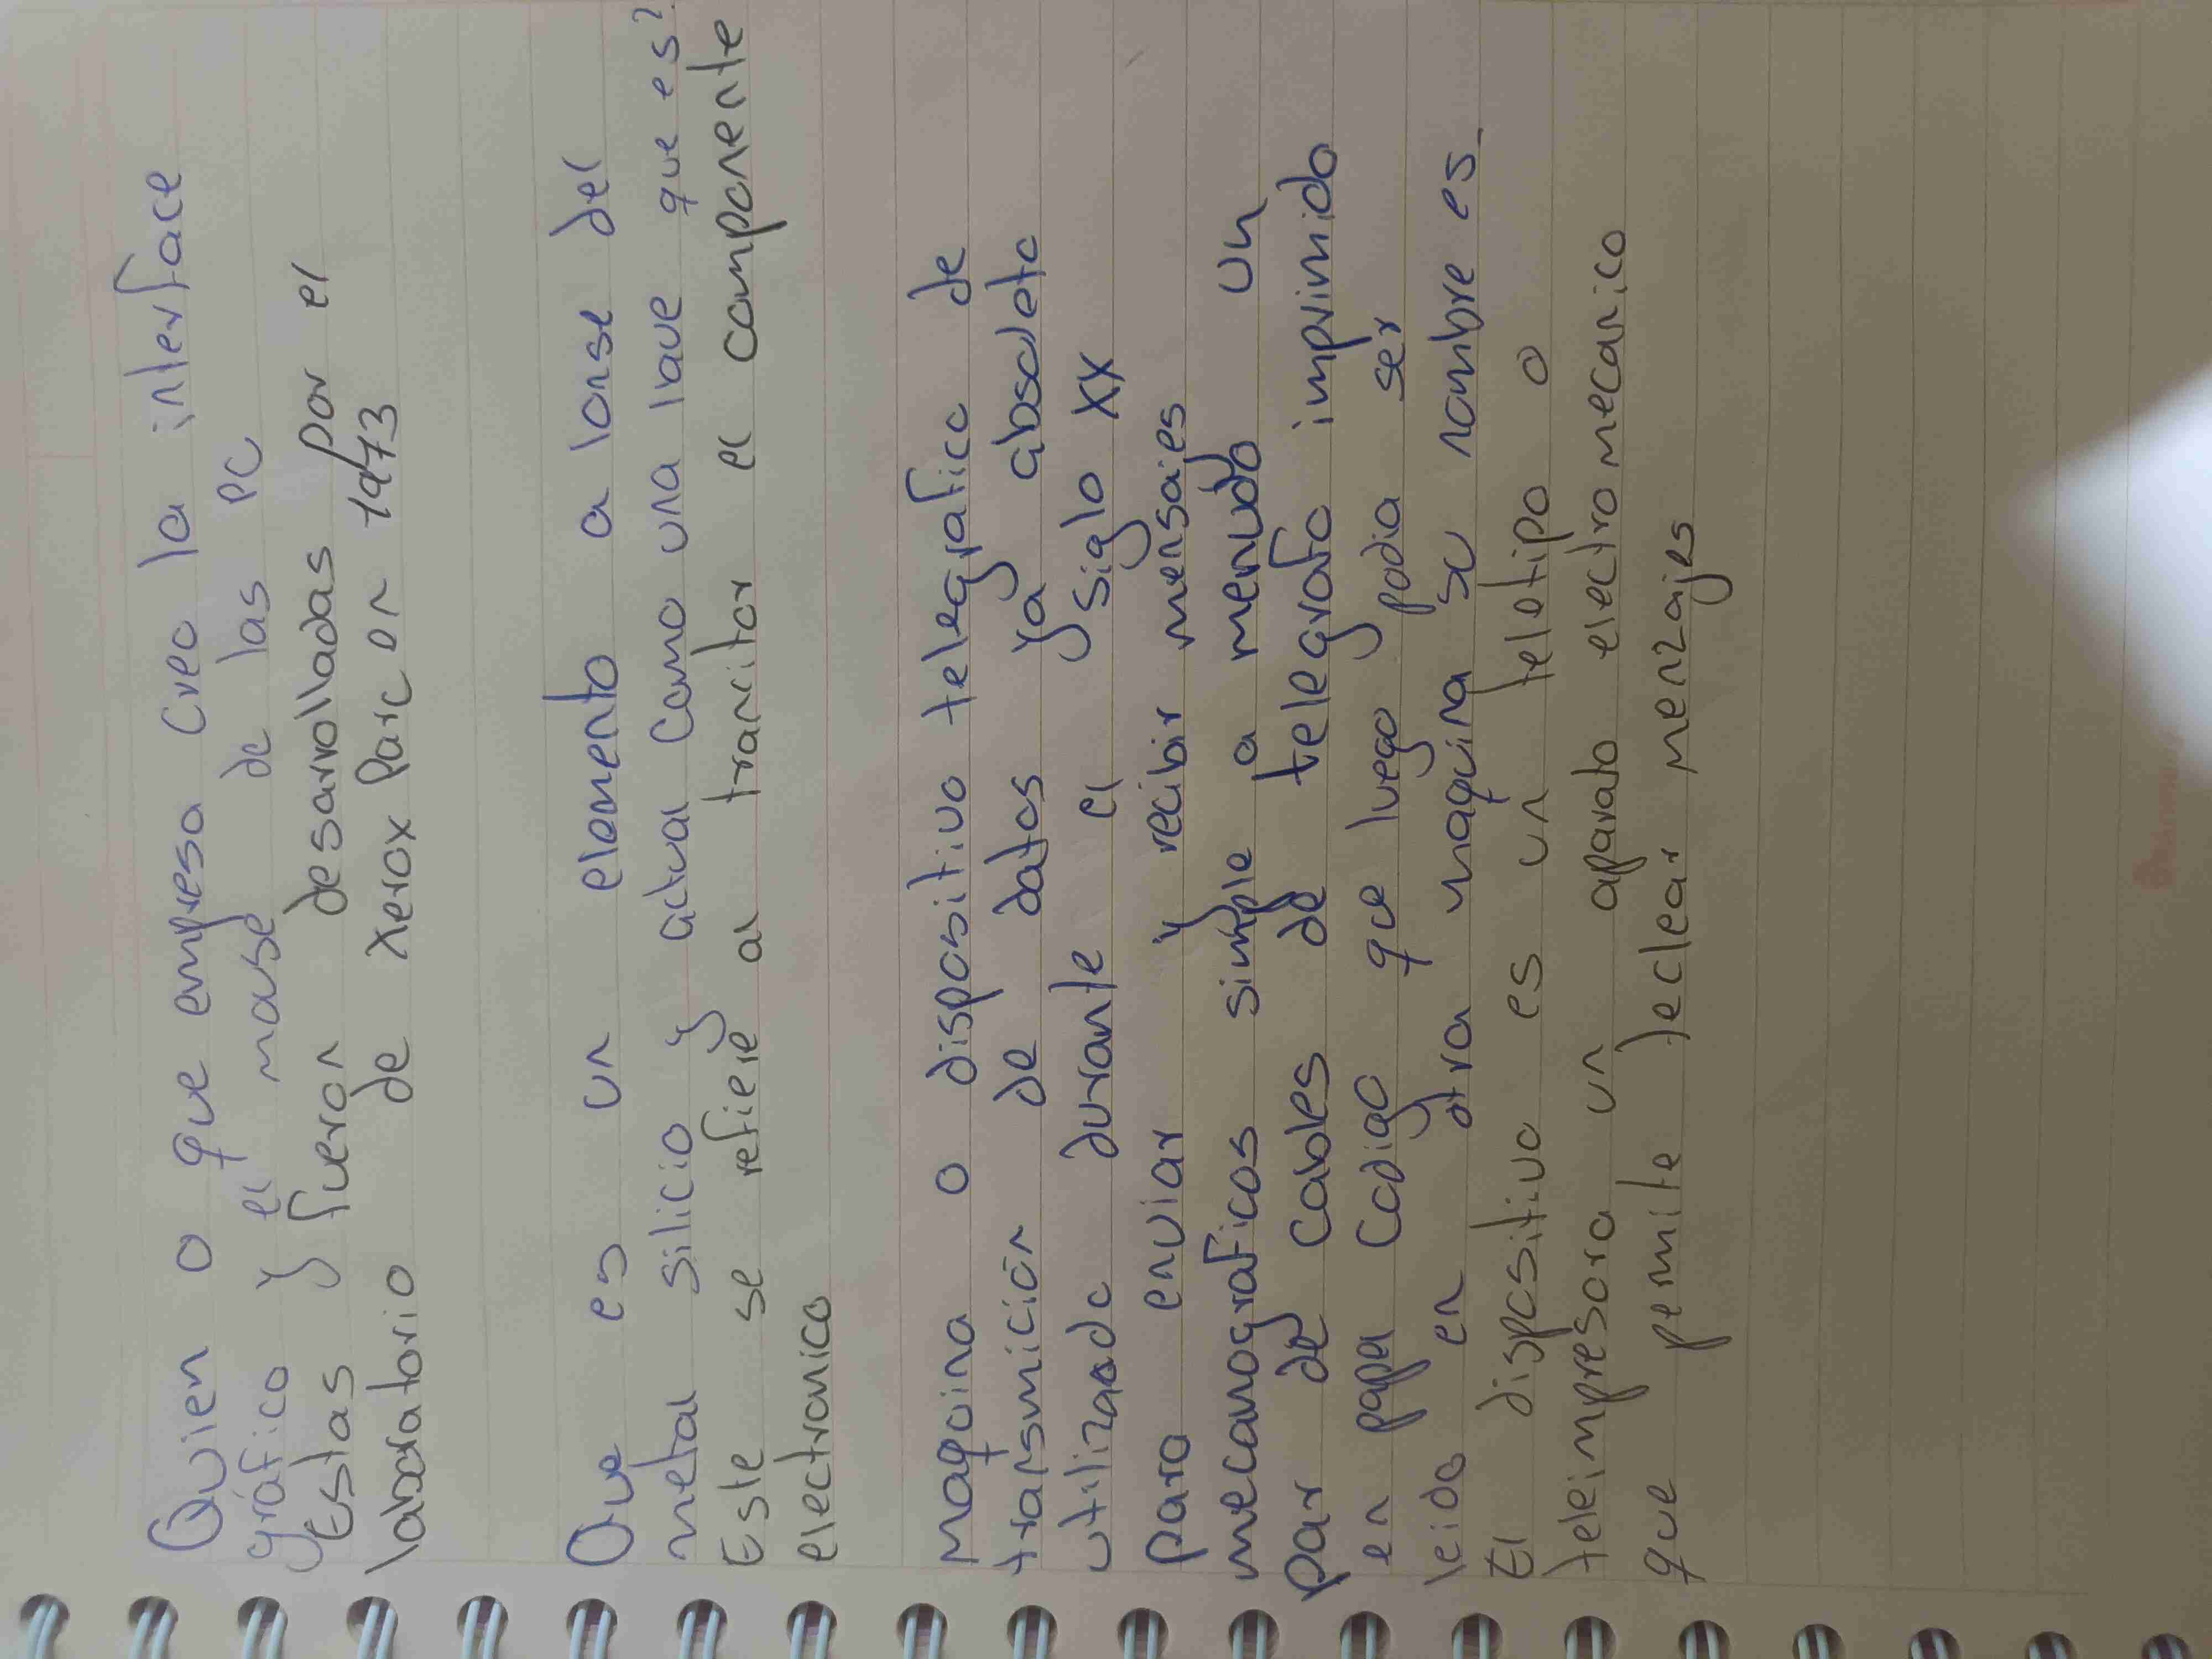 Quien o que empresa creo la interface
gráfico y el mause de las pc
Estas y fueron desarrolladas por el
laboratorio de xerox Parc en 1973
Que es un elemento a lonse del
metal silicio y actua como una lave que es?
Este se refiere al trancitor el componente
electronico
Maqoina o dispositivo telegrafico de
transmición de datos ya absoleto
utilizado durante el siglo XX
para enviar y recibir mensajes
mecanograficos simple a menudo un
par de cables de telegrafo imprimido
en papel codigo que luego podia ser
leido en otra maquina su nombre es
El dispositivo es un teletipo o
teleimpresora un aparato electro mecanico
que pemite teclear menzajes